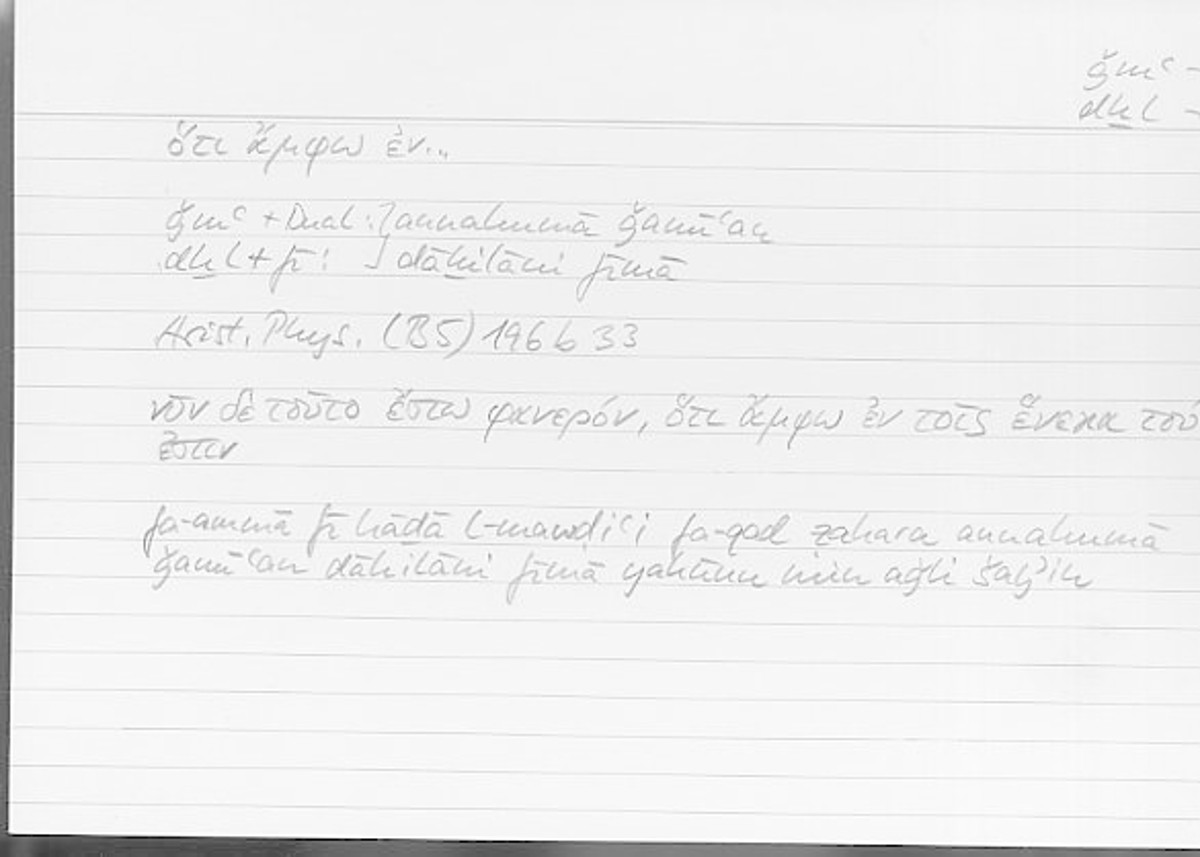 ǧmʿ -
dḫl -
ὅτι ἄμφω ἐν...
ǧmʿ + Dual: ] annahumā ǧamīʿan
dḫl + fī: ] dāḫilāni fīmā
Arist. Phys. (B5) 196 b 33
νῦν δὲ τοῦτο ἔστω φανερόν, ὅτι ἄμφω ἐν τοῖς ἕνεκα του
ἐστιν
fa-ammā fī hāḏā l-mawḍiʿi fa-qad ẓahara annahumā
ǧamīʿan dāḫilāni fīmā yakūnu min aǧli šayʾin